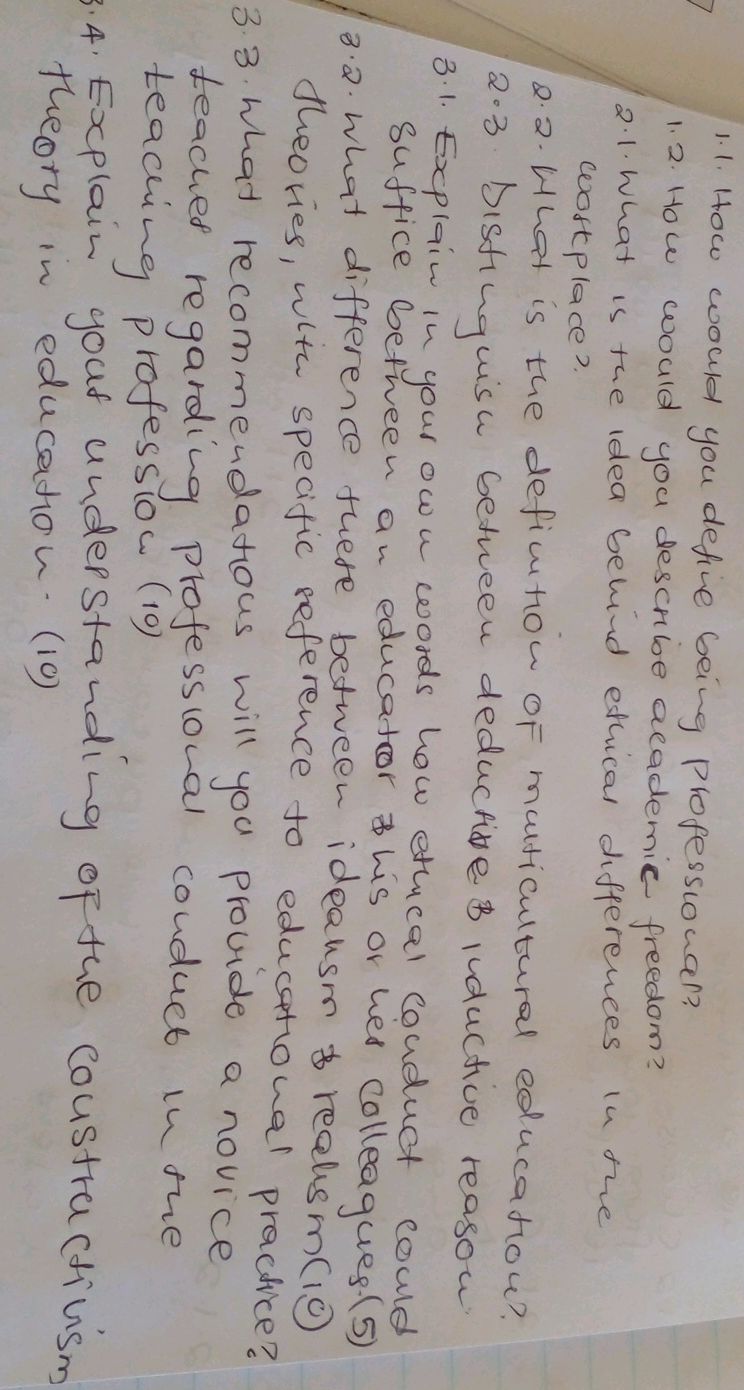 1.1. How would you define being professional?
1.2. How would you describe academic freedom?
2.1. What is the idea behind ethical differences in the
workplace?
2.2. What is the definition of multicultural education?
2.3. Distinguish between deductive & inductive reason
3.1. Explain in your own words how ethical conduct could
suffice between an educator & his or her colleagues.(5)
3.2. What difference there between idealism & realism(10)
theories, with specific reference to educational practice?
3.3. What recommendations will you provide a novice
teacher regarding professional conduct in the
teaching profession (10)
3.4. Explain your understanding of the constructivism
theory in education. (10)